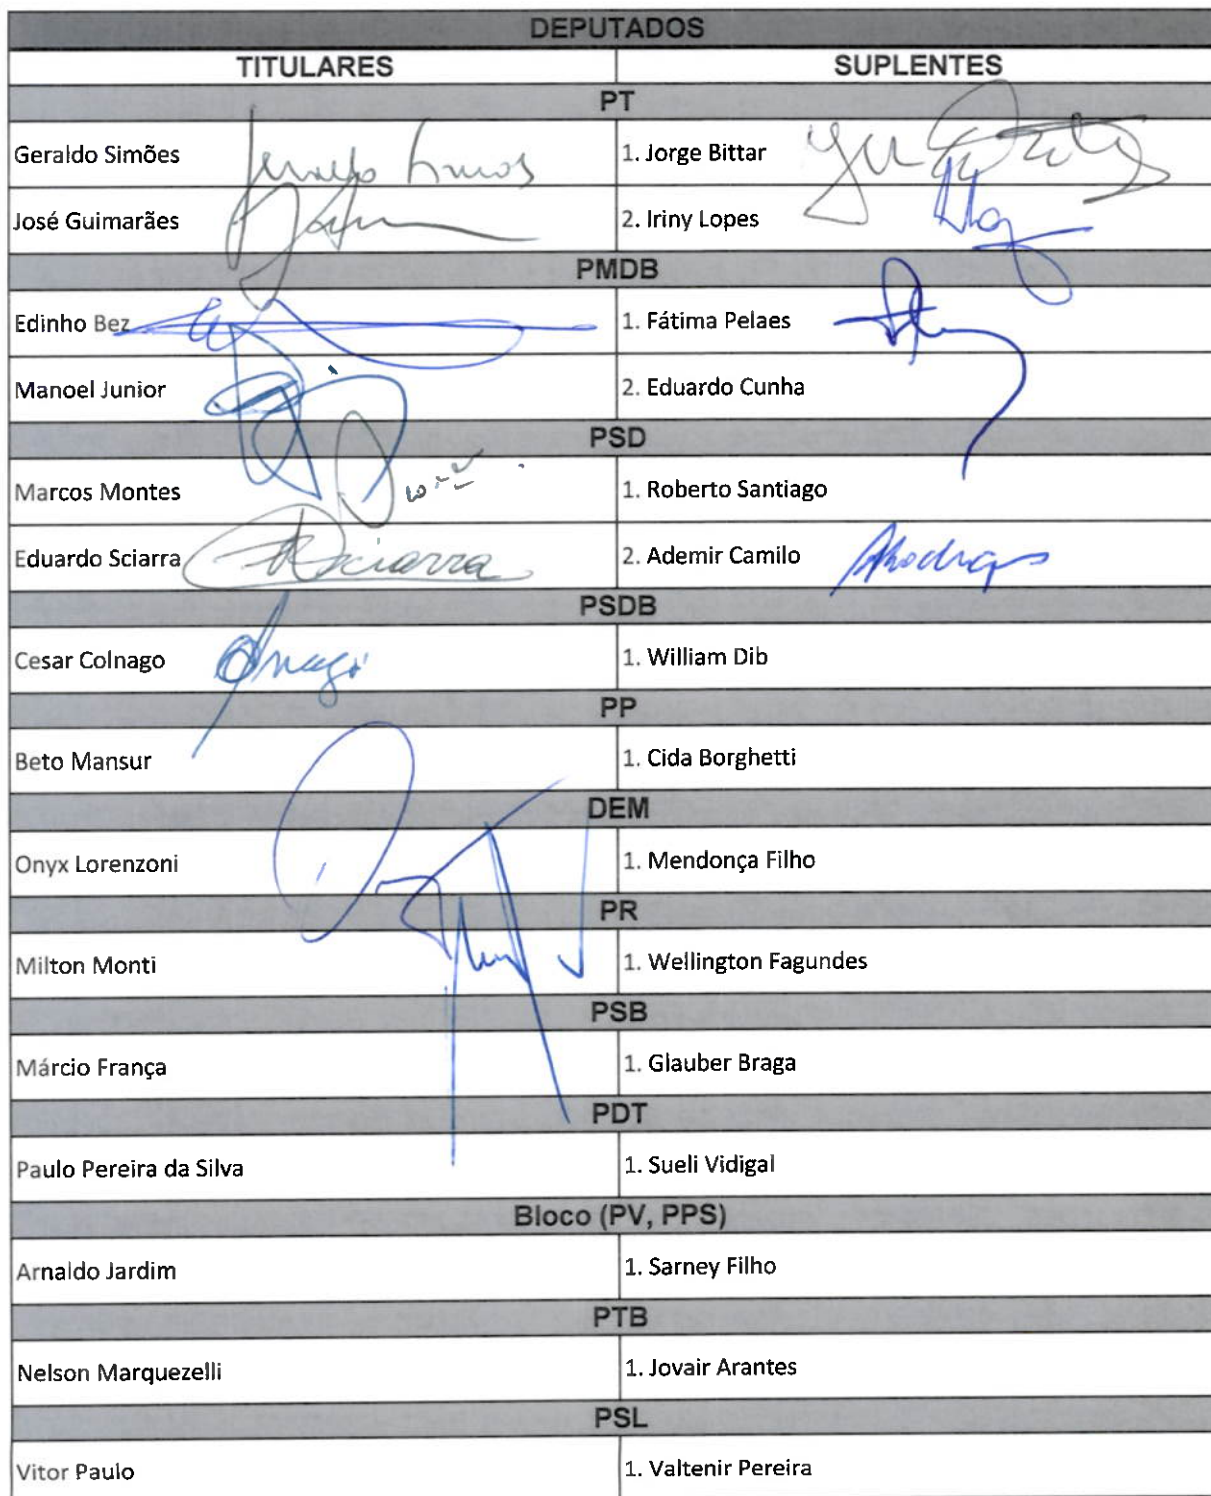 DEPUTADOS
TITULARES SUPLENTES
PT
Geraldo Simões 1. Jorge Bittar
José Guimarães 2. Iriny Lopes
PMDB
Edinho Bez 1. Fátima Pelaes
Manoel Junior 2. Eduardo Cunha
PSD
Marcos Montes 1. Roberto Santiago
Eduardo Sciarra Sciarra 2. Ademir Camilo
PSDB
Cesar Colnago 1. William Dib
PP
Beto Mansur 1. Cida Borghetti
DEM
Onyx Lorenzoni 1. Mendonça Filho
PR
Milton Monti 1. Wellington Fagundes
PSB
Márcio França 1. Glauber Braga
PDT
Paulo Pereira da Silva 1. Sueli Vidigal
Bloco (PV, PPS)
Arnaldo Jardim 1. Sarney Filho
PTB
Nelson Marquezelli 1. Jovair Arantes
PSL
Vitor Paulo 1. Valtenir Pereira